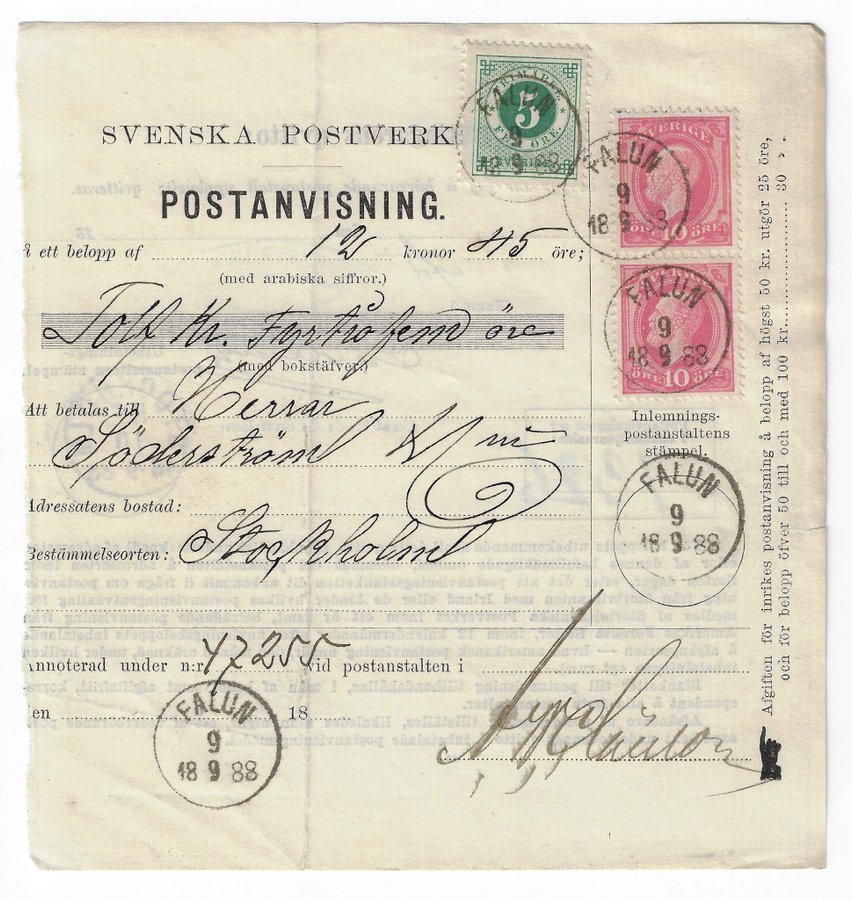 SVENSKA POSTVERK
POSTANVISNING.
å ett belopp af 12 kronor 45 öre;
(med arabiska siffror.)
Tolf Kr. Fyrtiofem öre
(med bokstäfver.)
Att betalas till Herrar
Söderström &
Adressatens bostad:
Bestämmelseorten: Stockholm
Annoterad under n:r 47255 vid postanstalten i
en 18
FRIMÄRKE
5
FEM ÖRE.
SVERIGE
FALUN
9
18 9 88
SVERIGE
ÖRE 10 ÖRE
FALUN
9
18 9 88
SVERIGE
ÖRE 10 ÖRE
FALUN
9
18 9 88
Inlemnings-
postanstaltens
stämpel.
FALUN
9
18 9 88
FALUN
9
18 9 88
Afgiften för inrikes postanvisning å belopp af högst 50 kr. utgör 25 öre,
och för belopp öfver 50 till och med 100 kr. 30